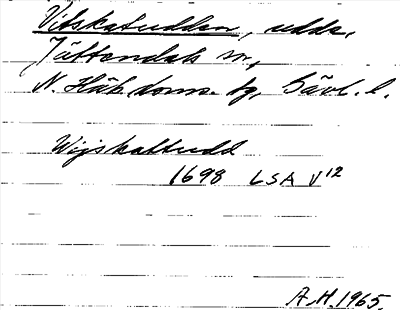 Vitskatudden, udde,
Jättendals sn,
N. Häls. doms. tg, Gävl. l.
Wijskattudd
1698 LSA V12
A.H. 1965.